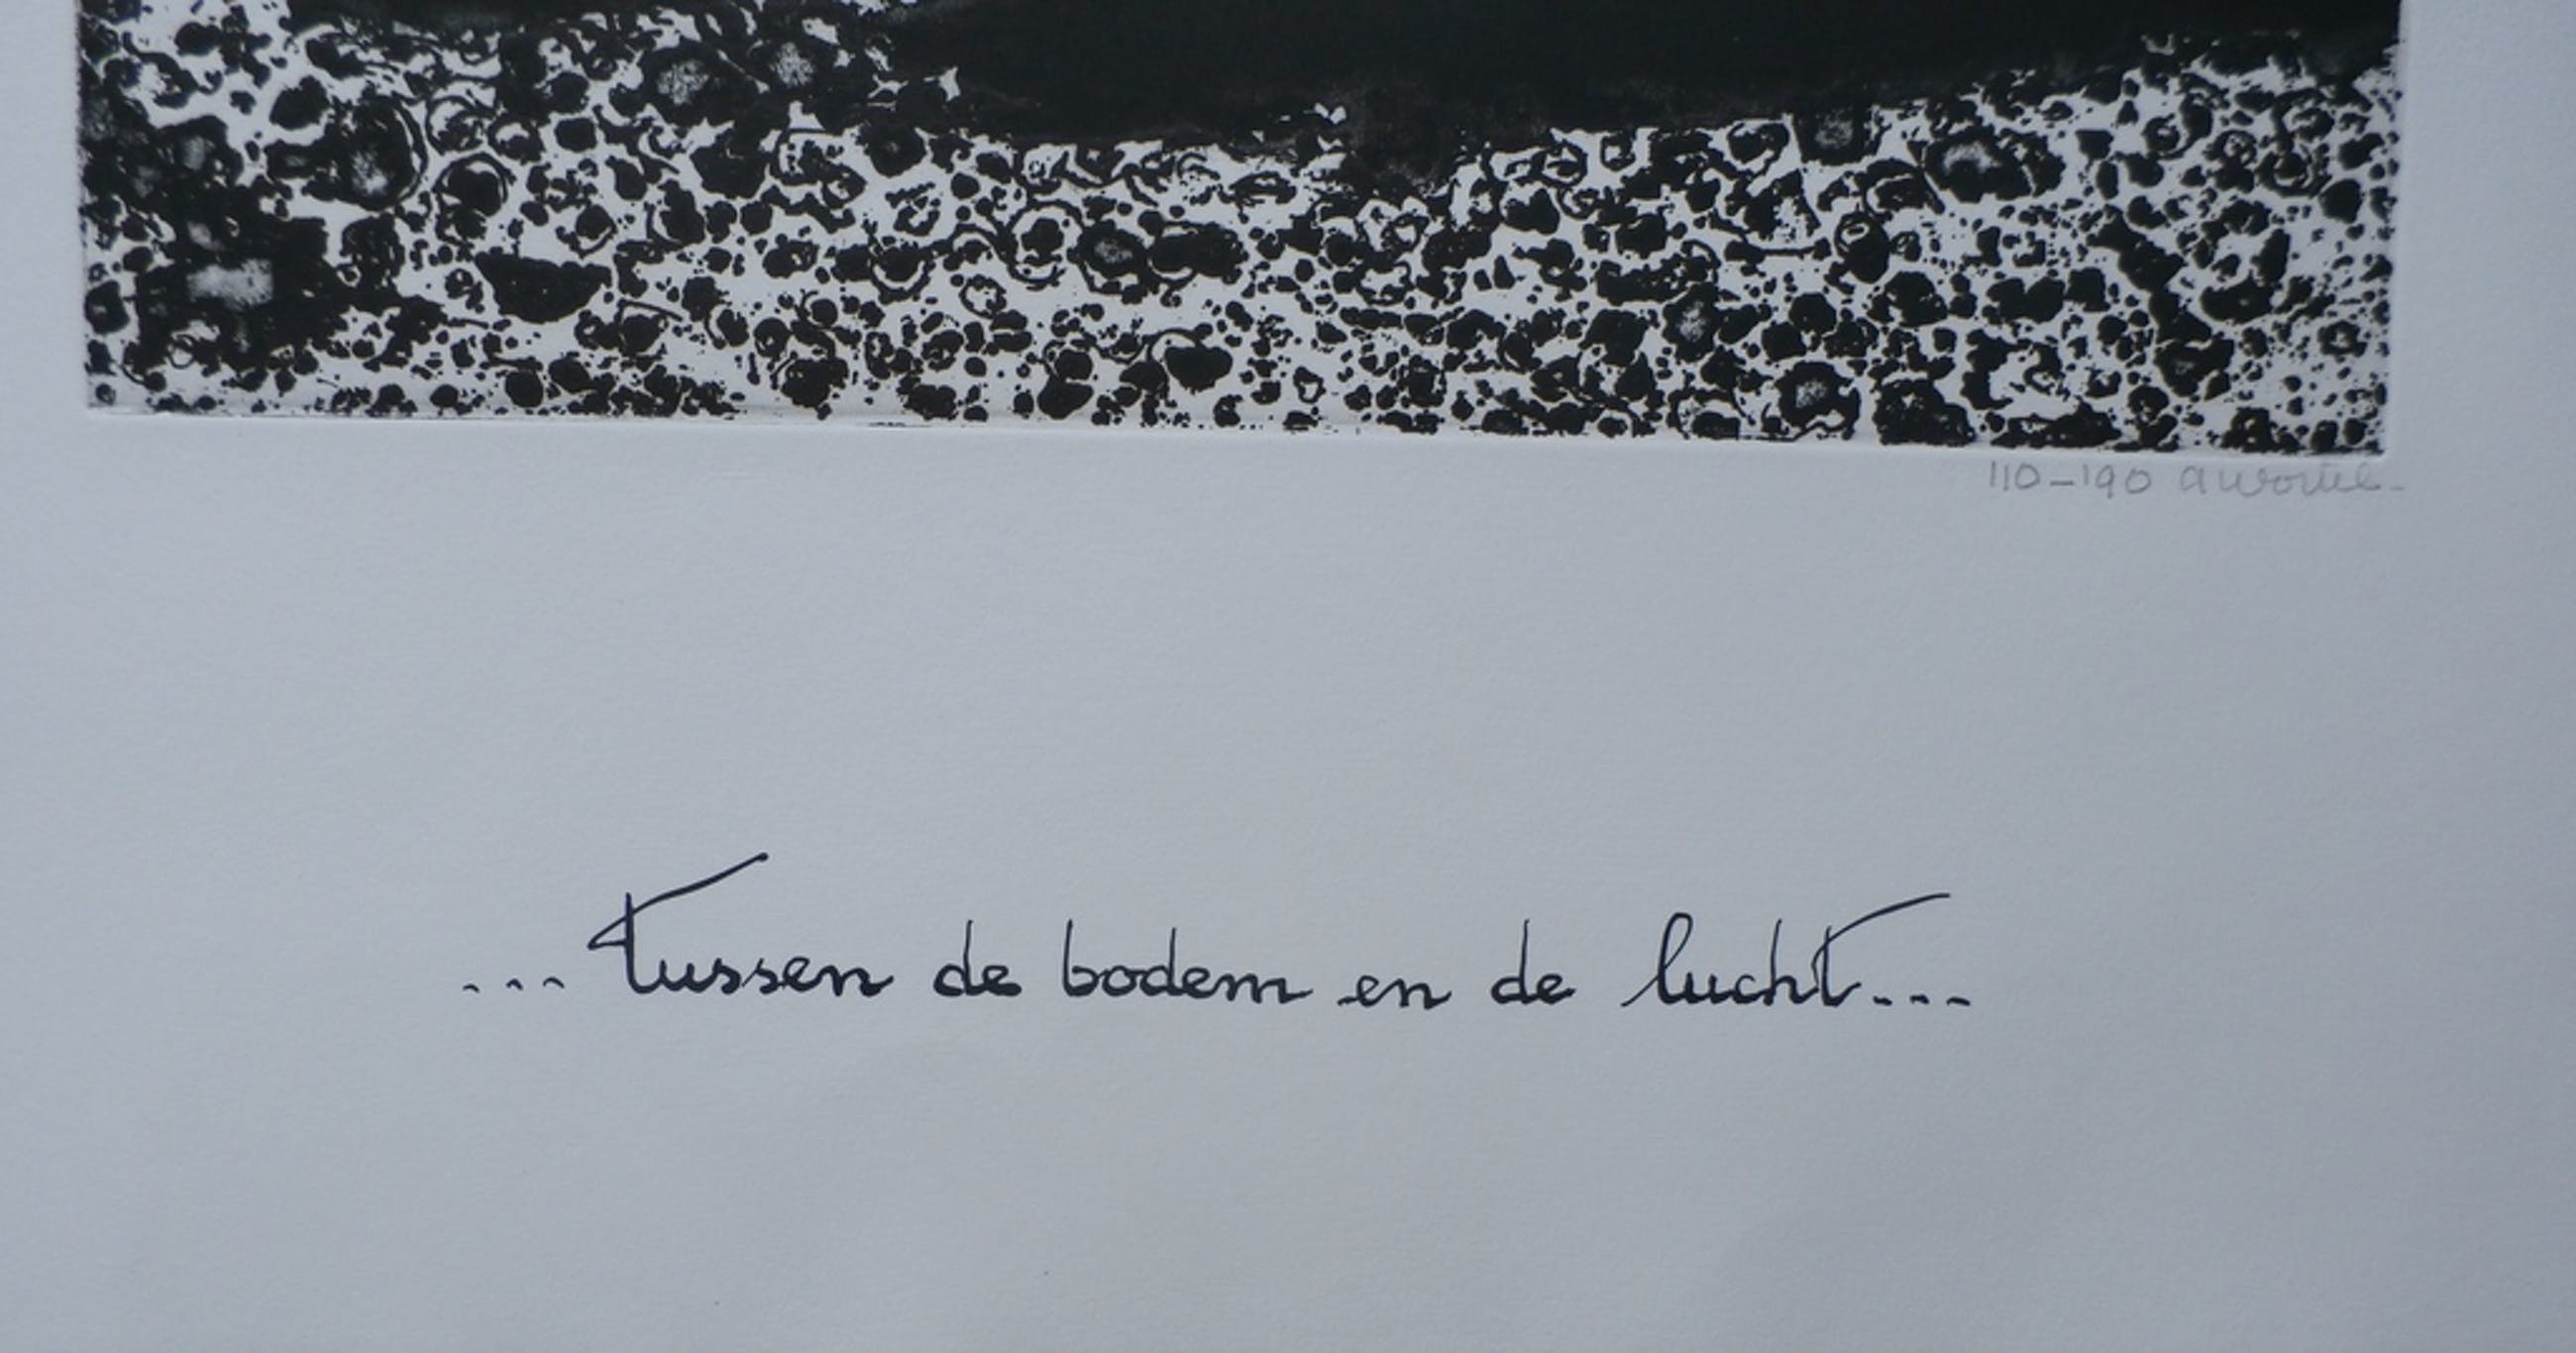 110-190
...Tussen de bodem en de lucht...